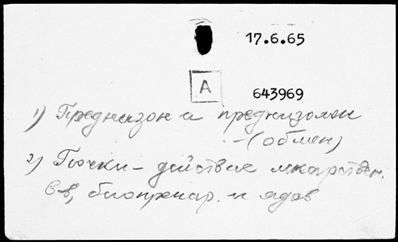 17.6.65
А
643969
1) Преднизон и преднизолон
- (обмен)
2) Почки - действие лекарствен.
в-в, биопрепар. и ядов